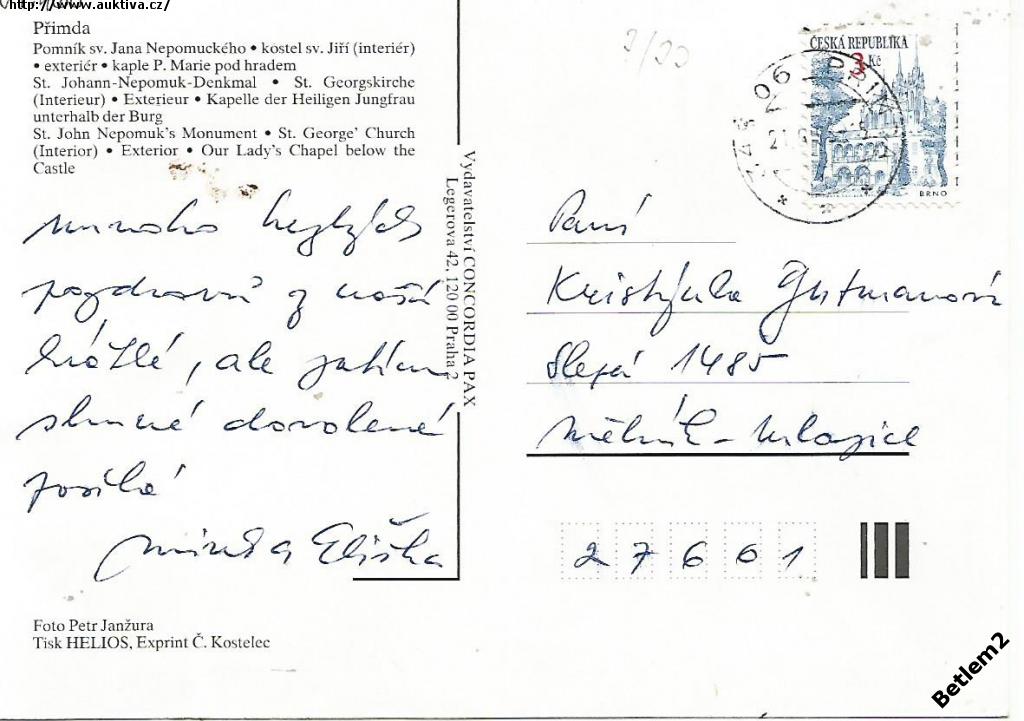 http://www.auktiva.cz/
Přimda
Pomník sv. Jana Nepomuckého • kostel sv. Jiří (interiér)
• exteriér • kaple P. Marie pod hradem
St. Johann-Nepomuk-Denkmal • St. Georgskirche
(Interieur) • Exterieur • Kapelle der Heiligen Jungfrau
unterhalb der Burg
St. John Nepomuk's Monument • St. George' Church
(Interior) • Exterior • Our Lady's Chapel below the
Castle
mnoho hezkých
pozdravů z naší
krátké, ale zatím
slunné dovolené
posílá
a Eliška
Foto Petr Janžura
Tisk HELIOS, Exprint Č. Kostelec
Vydavatelství CONCORDIA PAX
Legerova 42, 120 00 Praha 2
ČESKÁ REPUBLIKA
3 Kč
BRNO
Paní
Kristýnka Gutmanová
Slepá 1485
Mělník - Mlazice
27601
Betlem2